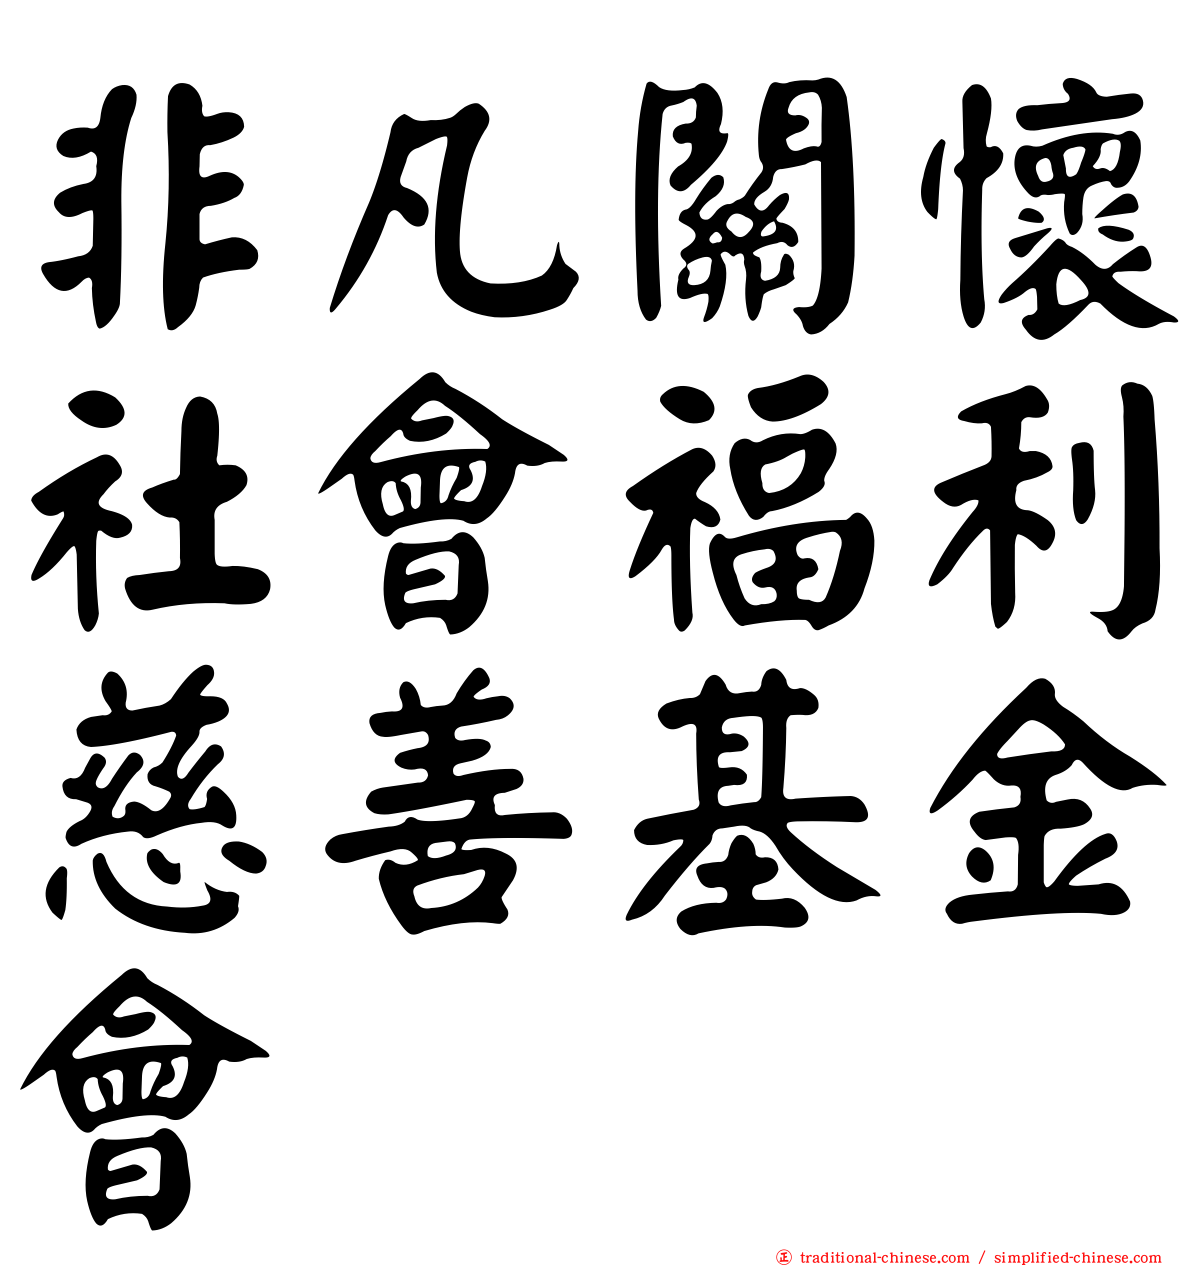 非凡關懷
社會福利
慈善基金
會
正 traditional-chinese.com / simplified-chinese.com